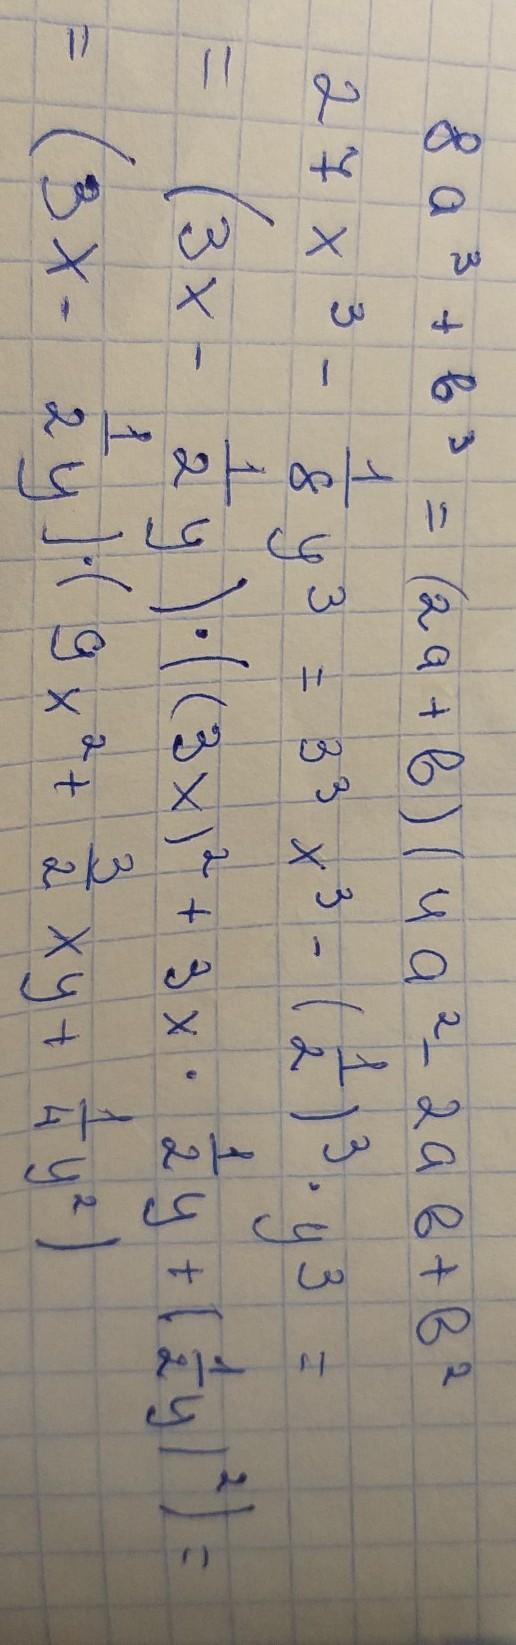 8a³ + b³ = (2a + b)(4a² - 2ab + b²
27x³ - 1/8 y³ = 3³x³ - (1/2)³ · y³ =
= (3x - 1/2 y) · ((3x)² + 3x · 1/2 y + (1/2 y)²) =
= (3x - 1/2 y) · (9x² + 3/2 xy + 1/4 y²)